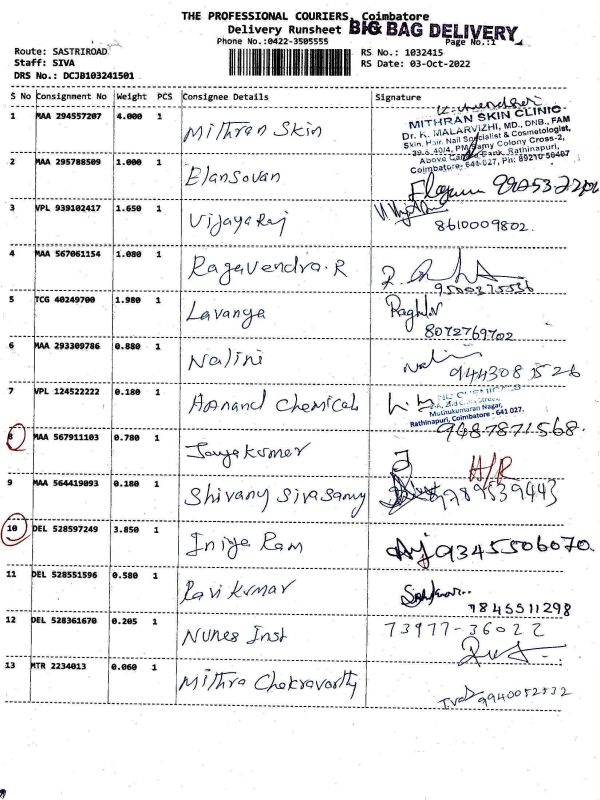 THE PROFESSIONAL COURIERS, Coimbatore
Delivery Runsheet BIG BAG DELIVERY
Phone No.:0422-3505555 Page No.:1
Route: SASTRIROAD RS No.: 1032415
Staff: SIVA RS Date: 03-Oct-2022
DRS No.: DCJB103241501
S No Consignment No Weight PCS Consignee Details Signature
1 MAA 294557207 4.000 1 Mithran Skin
MITHRAN SKIN CLINIC
Dr. K. MALARVIZHI, MD., DNB., FAM
Skin, Hair, Nail Specialist & Cosmetologist,
Samy Colony Cross-2,
Above Bank, Rathinapuri,
Coimbatore- 641 027, Ph: 89210 58487
2 MAA 295788509 1.000 1 Elansovan
3 VPL 939102417 1.650 1 Vijayaraj
8610009802.
4 MAA 567061154 1.080 1 Ragavendra.R
5 TCG 40249700 1.980 1 Lavanya
8072769702
6 MAA 293309786 0.880 1 Nalini
9443081526
7 VPL 124522222 0.180 1 Aanand Chemicals
Muthukumaran Nagar,
Rathinapuri, Coimbatore - 641 027.
9487871568.
8 MAA 567911103 0.780 1 Jayakumar
H/R
9 MAA 564419093 0.180 1 Shivany Sivasamy
9789539443
10 DEL 528597249 3.850 1 Iniya Ram
9345506070.
11 DEL 528551596 0.580 1 Ravi Kumar
7845511298
12 DEL 528361670 0.205 1 Nunes Inst
73977-36022
13 MTR 2234013 0.060 1 Mithra Chakravarthy
9940052532